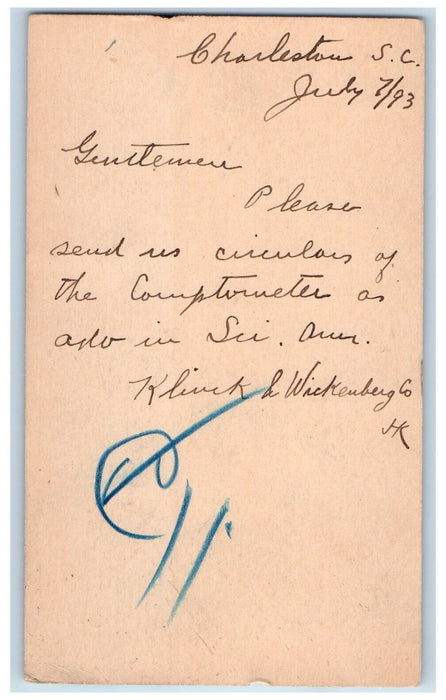 Charleston S.C.
July 7/93
Gentlemen
Please
send us circulars of
the Comptometer as
adv in Sci. Amr.
Klinck & Wickenberg Co
HK